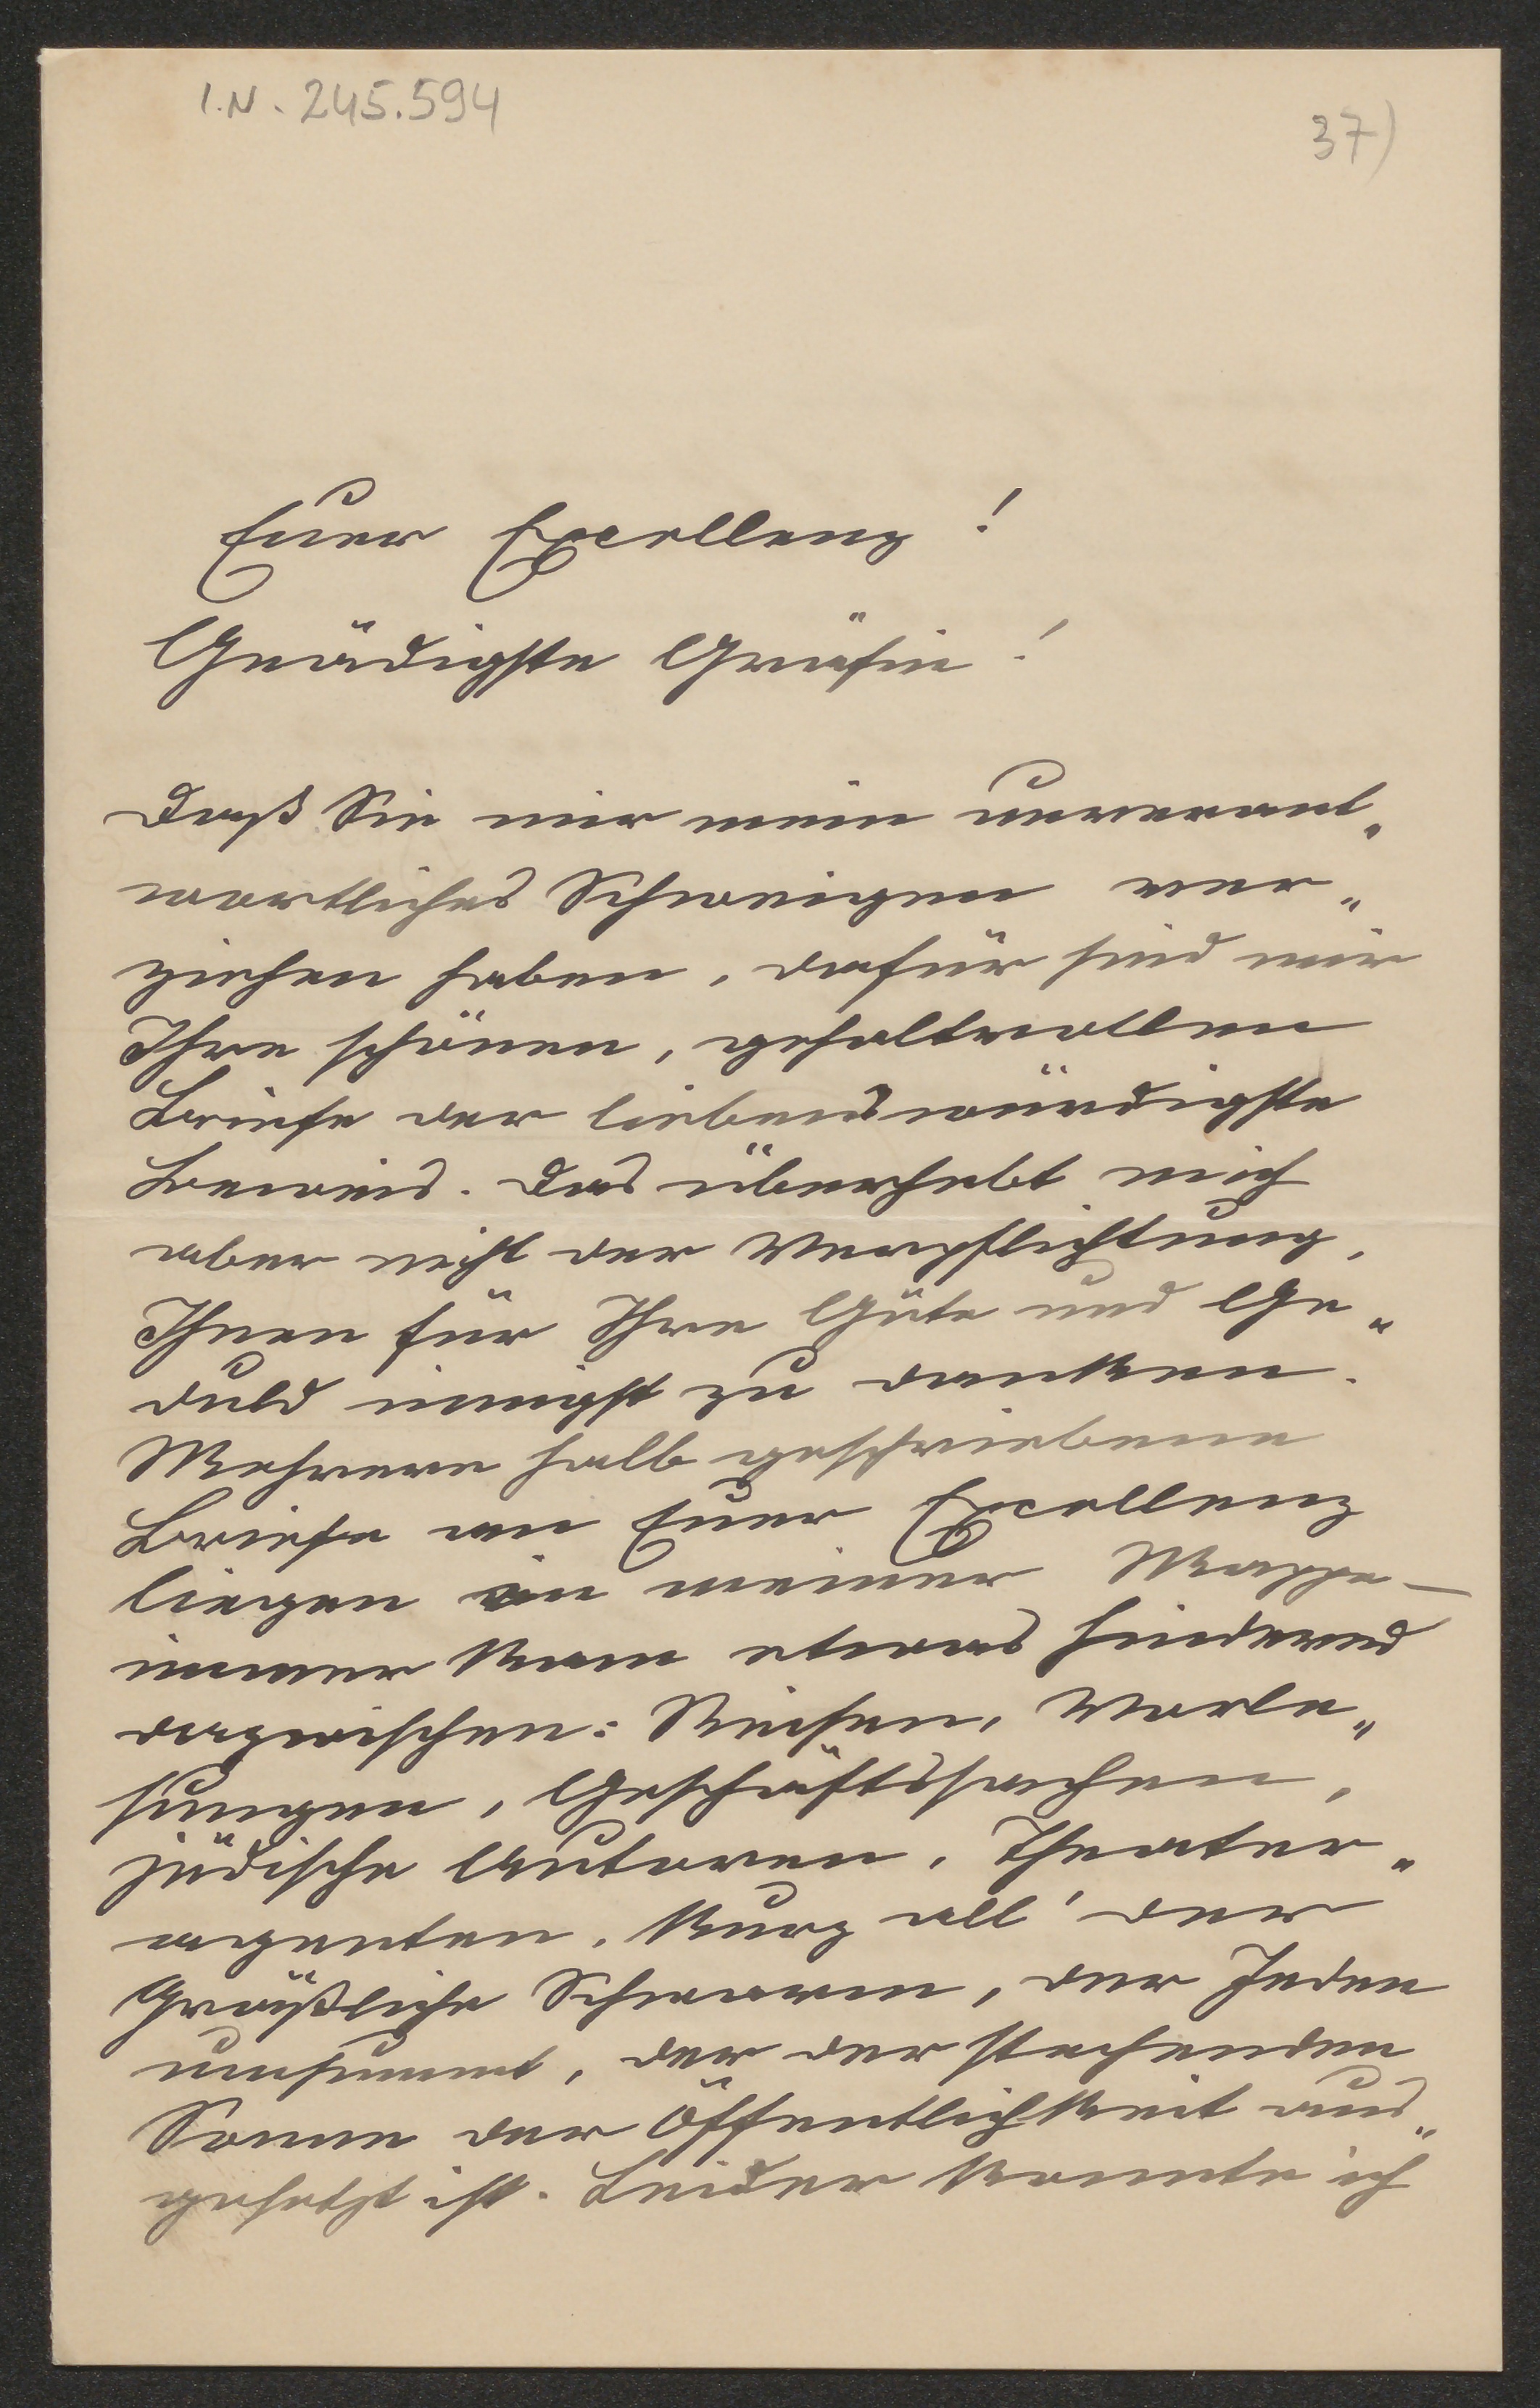 I.N. 245.594
37)
Euer Excellenz!
Gnädigste Gräfin!
Daß Sie mir mein unverant„
wortliches Schweigen ver„
ziehen haben, dafür sind mir
Ihre schönen, gehaltvollen
Briefe der liebenswürdigste
Beweis. Das überhebt mich
aber nicht der Verpflichtung,
Ihnen für Ihre Güte und Ge„
duld innigst zu danken.
Mehrere halb geschriebene
Briefe an Euer Excellenz
liegen in meiner Mappe –
immer kam etwas hindernd
dazwischen: Reisen, Vorle„
sungen, Geschäftssachen,
jüdische Autoren, Theater„
agenten, kurz all' der
gräßliche Schwarm, der Jeden
umsummt, der der stechenden
Sonne der Öffentlichkeit aus„
gesetzt ist. Leider konnte ich